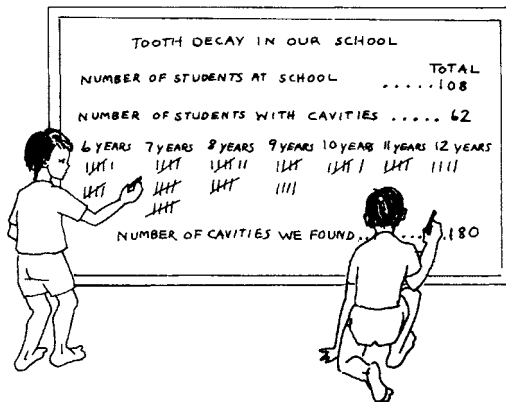 TOOTH DECAY IN OUR SCHOOL
TOTAL
NUMBER OF STUDENTS AT SCHOOL .....108
NUMBER OF STUDENTS WITH CAVITIES ..... 62
6 YEARS 7 YEARS 8 YEARS 9 YEARS 10 YEARS 11 YEARS 12 YEARS
NUMBER OF CAVITIES WE FOUND.........180